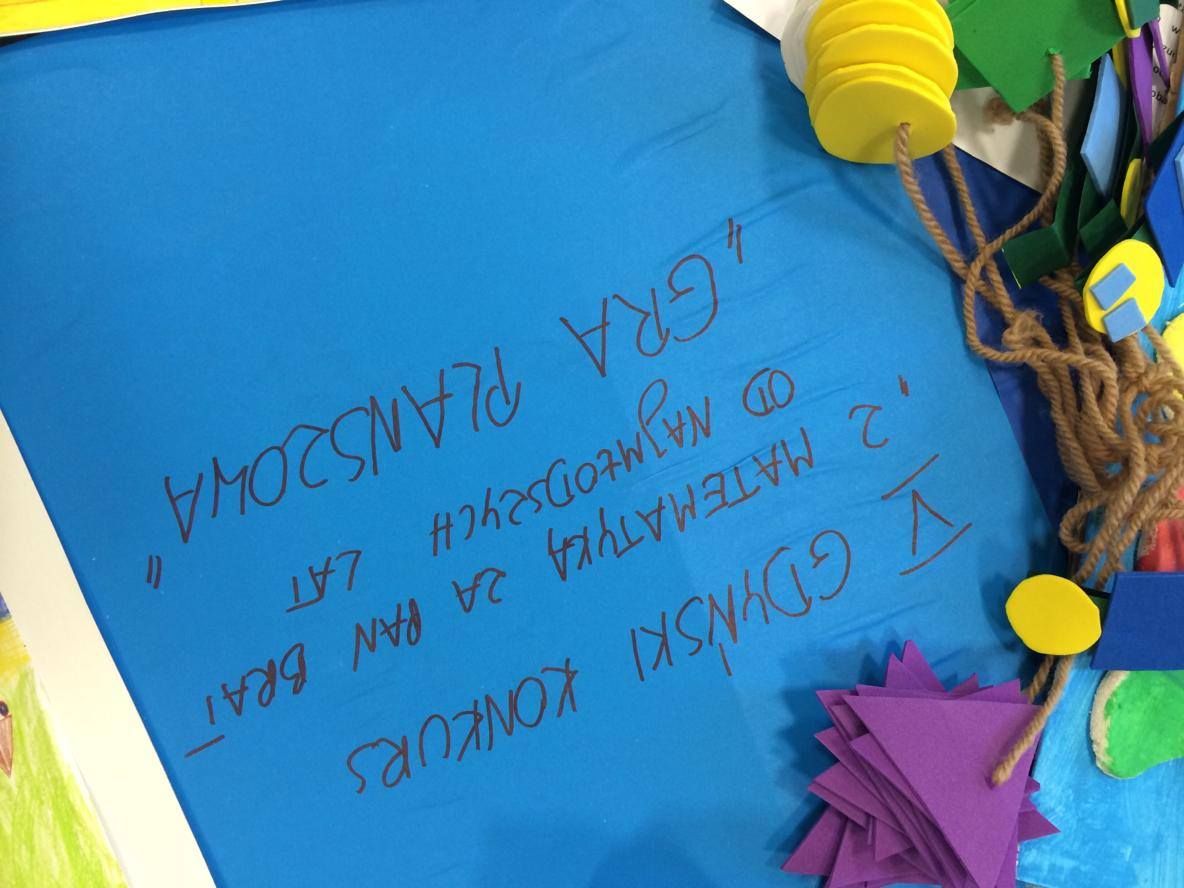 V GDYŃSKI KONKURS
, Z MATEMATYKĄ ZA PAN BRAT
OD NAJMŁODSZYCH LAT
„GRA PLANSZOWA"